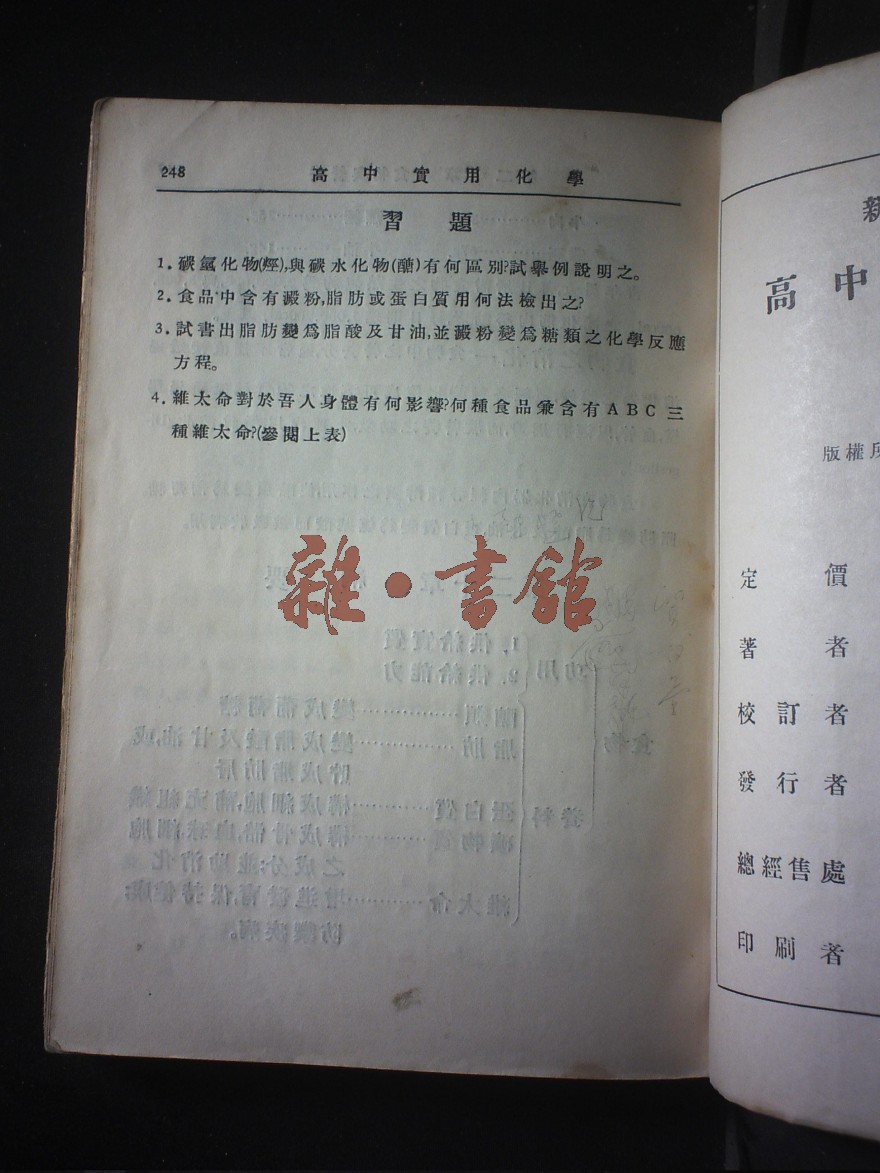 248 高中實用化學
習題
1. 碳氫化物(烴),與碳水化物(醣)有何區别?試舉例說明之。
2. 食品中含有澱粉,脂肪或蛋白質用何法檢出之?
3. 試書出脂肪變爲脂酸及甘油,並澱粉變爲糖類之化學反應
方程。
4. 維太命對於吾人身體有何影響?何種食品彙含有ABC三
種維太命?(參閱上表)
雜·書館
高中
版權
定價
著者
校訂者
發行者
總經售處
印刷者